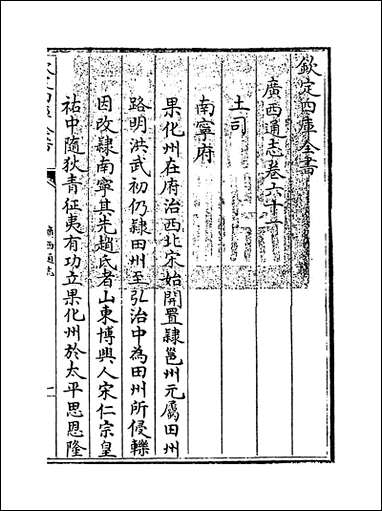 欽定四庫全書
廣西通志卷六十一
土司
南寧府
果化州在府治西北宋始開置隷邕州元屬田州
路明洪武初仍隷田州至弘治中為田州所侵轢
因改隷南寧其先趙氏者山東博興人宋仁宗皇
祐中隨狄青征夷有功立果化州於太平思恩隆
廣西通志